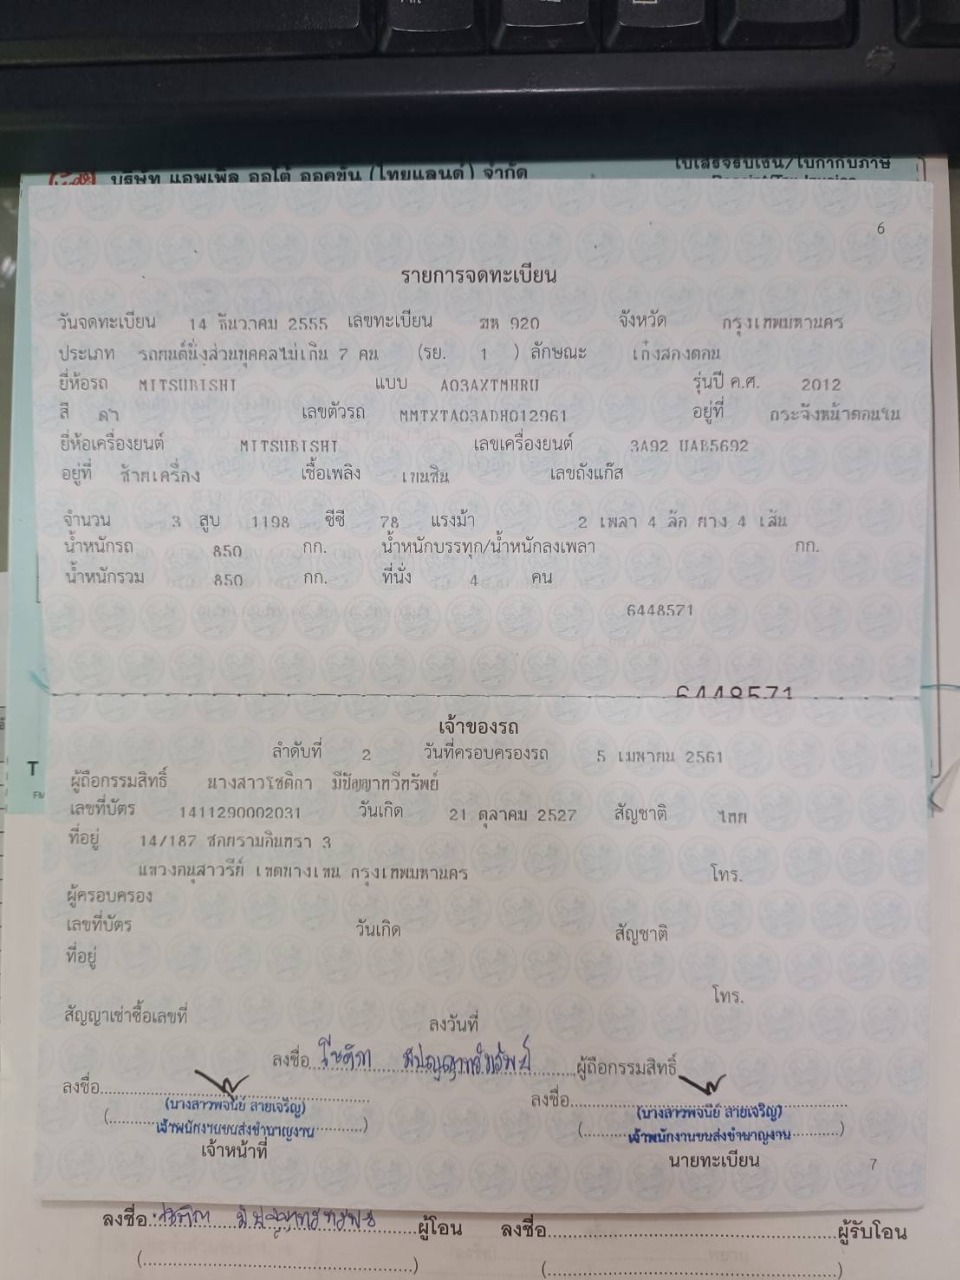 บริษัท แอพเพิล ออโต้ ออคชั่น (ไทยแลนด์) จำกัด ใบเสร็จรับเงิน/ใบกำกับภาษี
6
รายการจดทะเบียน
วันจดทะเบียน 14 ธันวาคม 2555 เลขทะเบียน 920 จังหวัด กรุงเทพมหานคร
ประเภท รถยนต์นั่งส่วนบุคคลไม่เกิน 7 คน (รย. 1 ) ลักษณะ เก๋งสองตอน
ยี่ห้อรถ MITSUBISHI แบบ A03AXTMHRU รุ่นปี ค.ศ. 2012
สี ดำ เลขตัวรถ MMTXTA03ADH012961 อยู่ที่ กระจังหน้าตอนใน
ยี่ห้อเครื่องยนต์ MITSUBISHI เลขเครื่องยนต์ 3A92 UAB5692
อยู่ที่ ซ้ายเครื่อง เชื้อเพลิง เบนซิน เลขถังแก๊ส
จำนวน 3 สูบ 1198 ซีซี 78 แรงม้า 2 เพลา 4 ล้อ ยาง 4 เส้น
น้ำหนักรถ 850 กก. น้ำหนักบรรทุก/น้ำหนักลงเพลา กก.
น้ำหนักรวม 850 กก. ที่นั่ง 4 คน
6448571
6448571
เจ้าของรถ
ลำดับที่ 2 วันที่ครอบครองรถ 5 เมษายน 2561
ผู้ถือกรรมสิทธิ์ นางสาวโชติกา มีปัญญาทวีทรัพย์
เลขที่บัตร 1411290002031 วันเกิด 21 ตุลาคม 2527 สัญชาติ ไทย
ที่อยู่ 14/187 ซอยรามอินทรา 3
แขวงอนุสาวรีย์ เขตบางเขน กรุงเทพมหานคร โทร.
ผู้ครอบครอง
เลขที่บัตร วันเกิด สัญชาติ
ที่อยู่
โทร.
สัญญาเช่าซื้อเลขที่ ลงวันที่
ลงชื่อ โชติกา มีปัญญาทวีทรัพย์ ผู้ถือกรรมสิทธิ์
ลงชื่อ ลงชื่อ
(นางสาวพจนีย์ สายเจริญ) (นางสาวพจนีย์ สายเจริญ)
เจ้าพนักงานขนส่งชำนาญงาน เจ้าพนักงานขนส่งชำนาญงาน
เจ้าหน้าที่ นายทะเบียน
7
ลงชื่อ โชติกา มีปัญญาทวีทรัพย์ ผู้โอน ลงชื่อ ผู้รับโอน